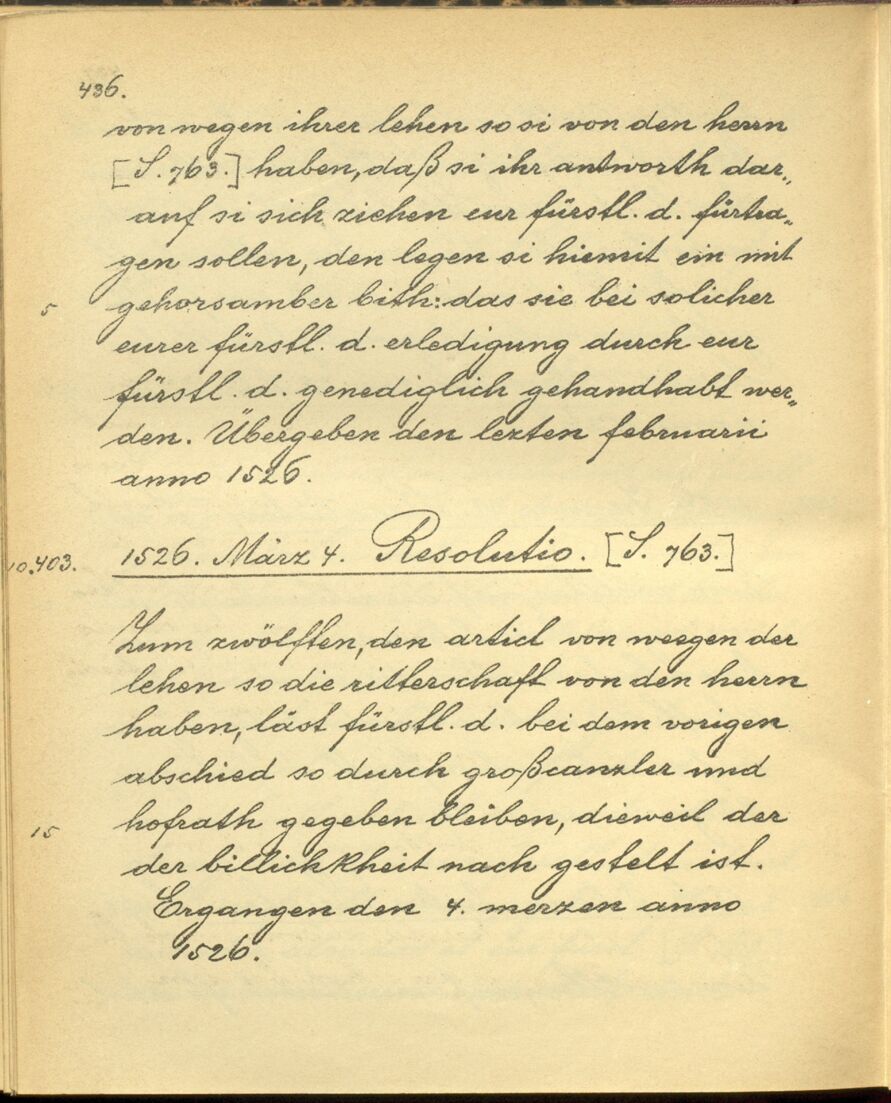 436.
von wegen ihrer lehen so si von den herrn
[S. 763.] haben, daß si ihr antworth dar„
auf si sich ziehen eur fürstl. d. fürtra„
gen sollen, den legen si hiemit ein mit
5 gehorsamber bith: das sie bei solicher
eurer fürstl. d. erledigung durch eur
fürstl. d. genediglich gehandhabt wer„
den. Übergeben den lezten februarii
anno 1526.
10. 403. 1526. März 4. Resolutio. [S. 763.]
Zum zwölften, den articl von weegen der
lehen so die ritterschaft von den herrn
haben, läst fürstl. d. bei dem vorigen
abschied so durch großcanzler und
15 hofrath gegeben bleiben, dieweil der
der billichkheit nach gestelt ist.
Ergangen den 4. merzen anno
1526.